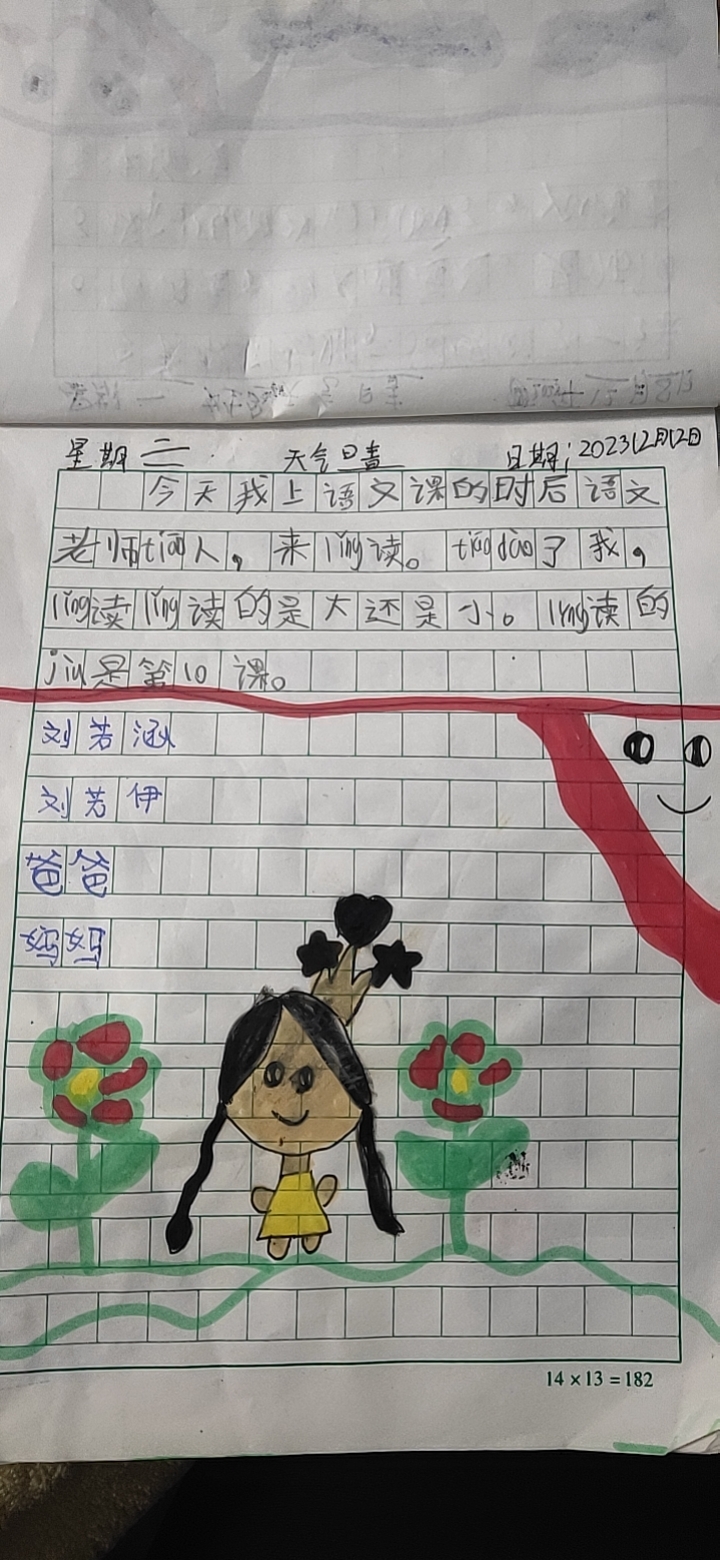 星期二 天气晴 日期：202312月12日
今天我上语文课的时后语文
老师tiāo人，来lǐng读。tiāodào了我，
lǐng读lǐng读的是大还是小。lǐng读的
jiù是第10课。
刘若涵
刘若伊
爸爸
妈妈
14×13=182